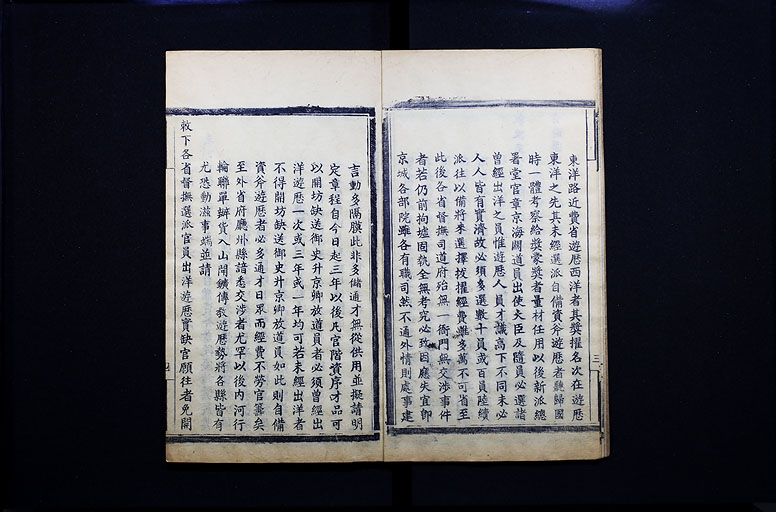 東洋路近費省遊歷西洋者其獎擢名次在遊歷
東洋之先其未經選派自備資斧遊歷者聽歸國
時一體考察給獎蒙獎者量材任用以後新派總
署堂官章京海關道員出使大臣及隨員必選諸
曾經出洋之員惟遊歷人員才識高下不同未必
人人皆有實濟故必須多選數十員或百員陸續
派往以備將來選擇拔擢經費雖多萬不可省至
此後各省督撫司道府殆無一衙門無交涉事件
者若仍前拘墟固執全無考究必致因應失宜即
京城各部院雖各有職司然不通外情則處事建
三
言動多隔膜此非多儲通才無從供用並擬請明
定章程自今日起三年以後凡官階資序才品可
以開坊缺送御史升京卿放道員者必須曾經出
洋遊歷一次或三年或一年均可若未經出洋者
不得開坊缺送御史升京卿放道員如此則自備
資斧遊歷者必多通才日眾而經費不勞官籌矣
至外省府廳州縣諳悉交涉者尤罕以後內河行
輪聯單辦貨入山開鑛傳教遊歷勢將各縣皆有
尤恐動滋事端並請
敕下各省督撫選派官員出洋遊歷實缺官願往者免開
四